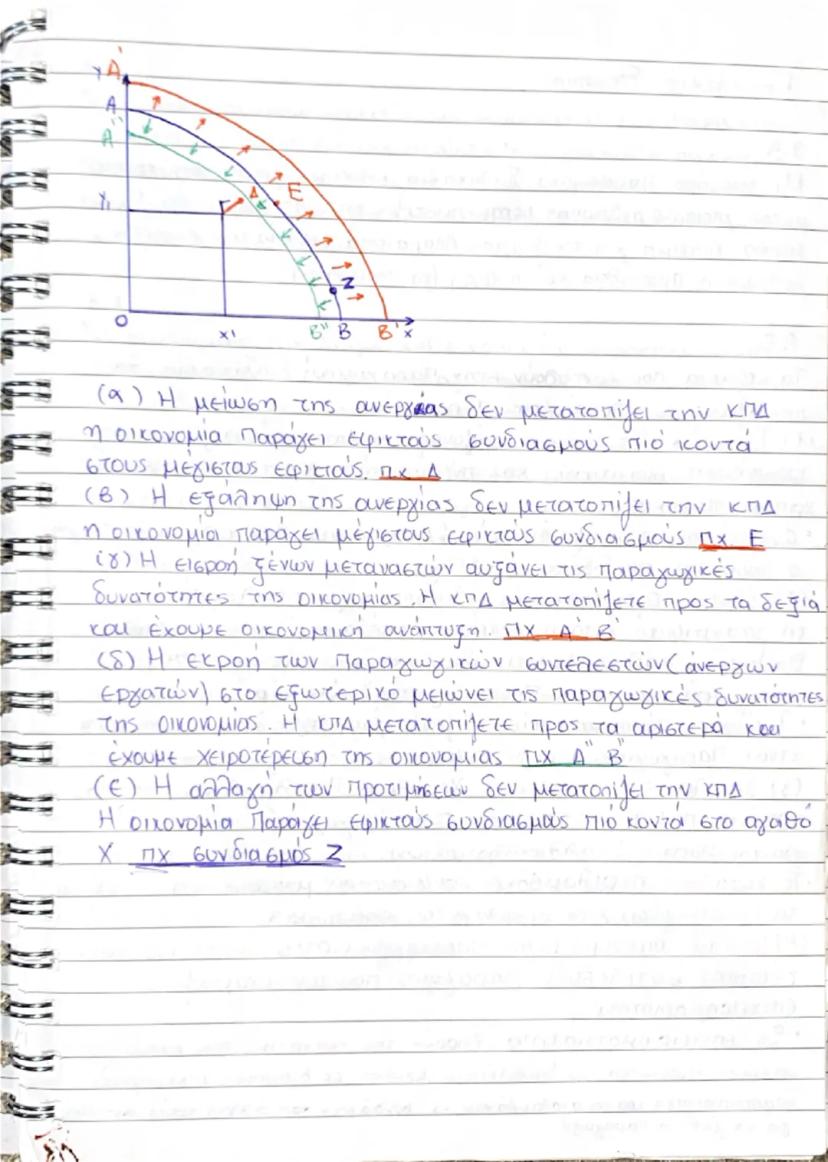 Υ Α'
Α
Α''
Δ Ε
Υ1 Γ
Ζ
Ο Χ1 Β'' Β Β' Χ
(α) Η μείωση της ανεργίας δεν μετατοπίζει την ΚΠΔ
η οικονομία παράγει εφικτούς συνδιασμούς πιό κοντά
στους μέγιστους εφικτούς. πχ Δ
(β) Η εξάληψη της ανεργίας δεν μετατοπίζει την ΚΠΔ
η οικονομία παράγει μέγιστους εφικτούς συνδιασμούς πχ Ε
(γ) Η εισροή ξένων μεταναστών αυξάνει τις παραγωγικές
δυνατότητες της οικονομίας. Η ΚΠΔ μετατοπίζετε προς τα δεξιά
και έχουμε οικονομική ανάπτυξη πχ Α' Β'
(δ) Η εκροή των παραγωγικών συντελεστών (άνεργων
εργατών) στο εξωτερικό μειώνει τις παραγωγικές δυνατότητες
της οικονομίας. Η ΚΠΔ μετατοπίζετε προς τα αριστερά και
έχουμε χειροτέρευση της οικονομίας πχ Α'' Β''
(ε) Η αλλαγή των προτιμήσεων δεν μετατοπίζει την ΚΠΔ
Η οικονομία παράγει εφικτούς συνδιασμούς πιό κοντά στο αγαθό
Χ πχ συνδιασμός Ζ